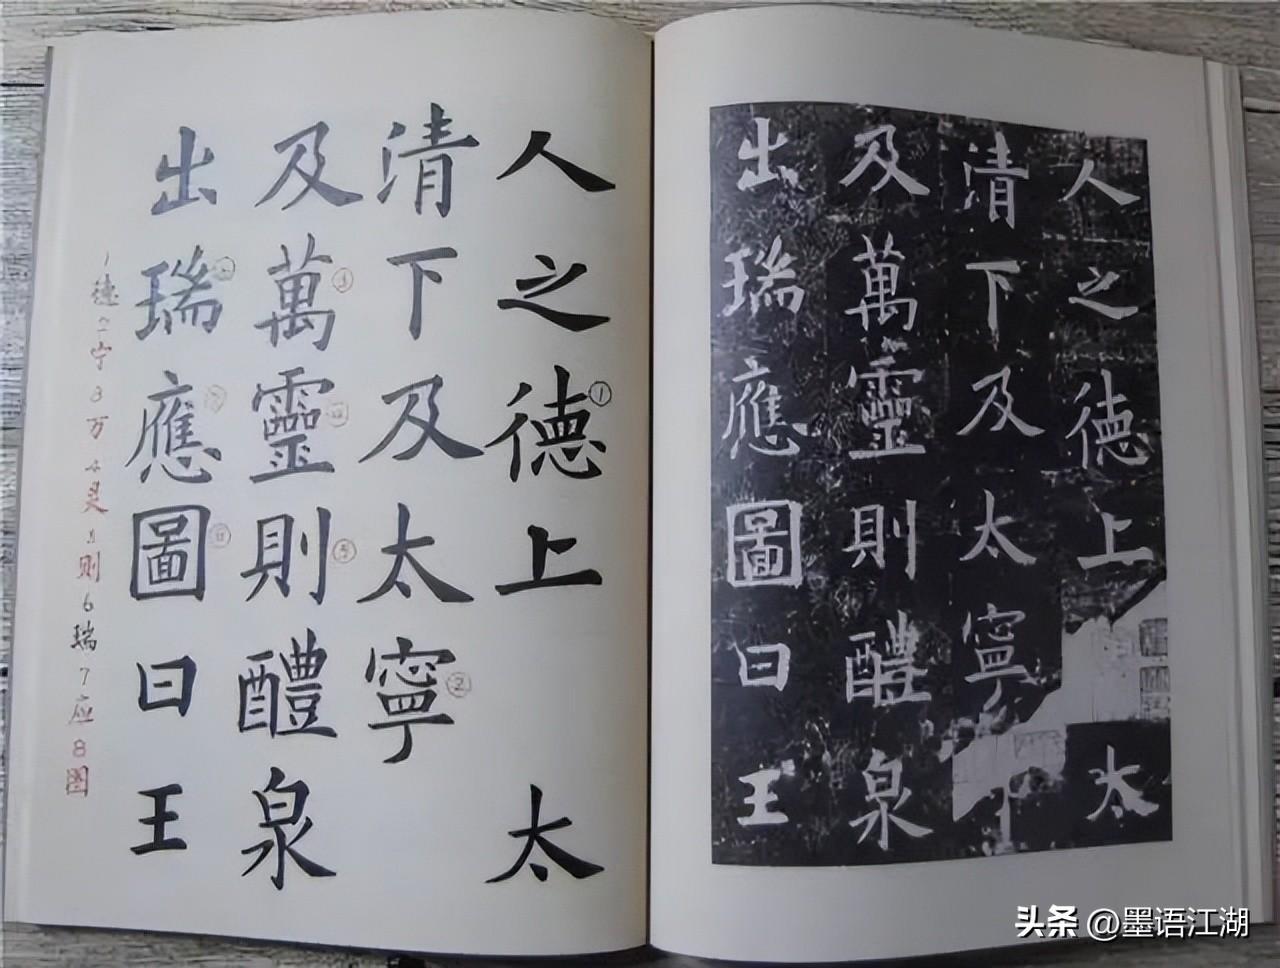 人之德上太
清下及太寧
及萬靈則醴泉
出瑞應圖曰王
人之德①上太
清下及太寧②
及萬③靈④則⑤醴泉
出瑞⑥應⑦圖⑧曰王
1德2宁3万4灵5则6瑞7应8图
头条 @墨语江湖